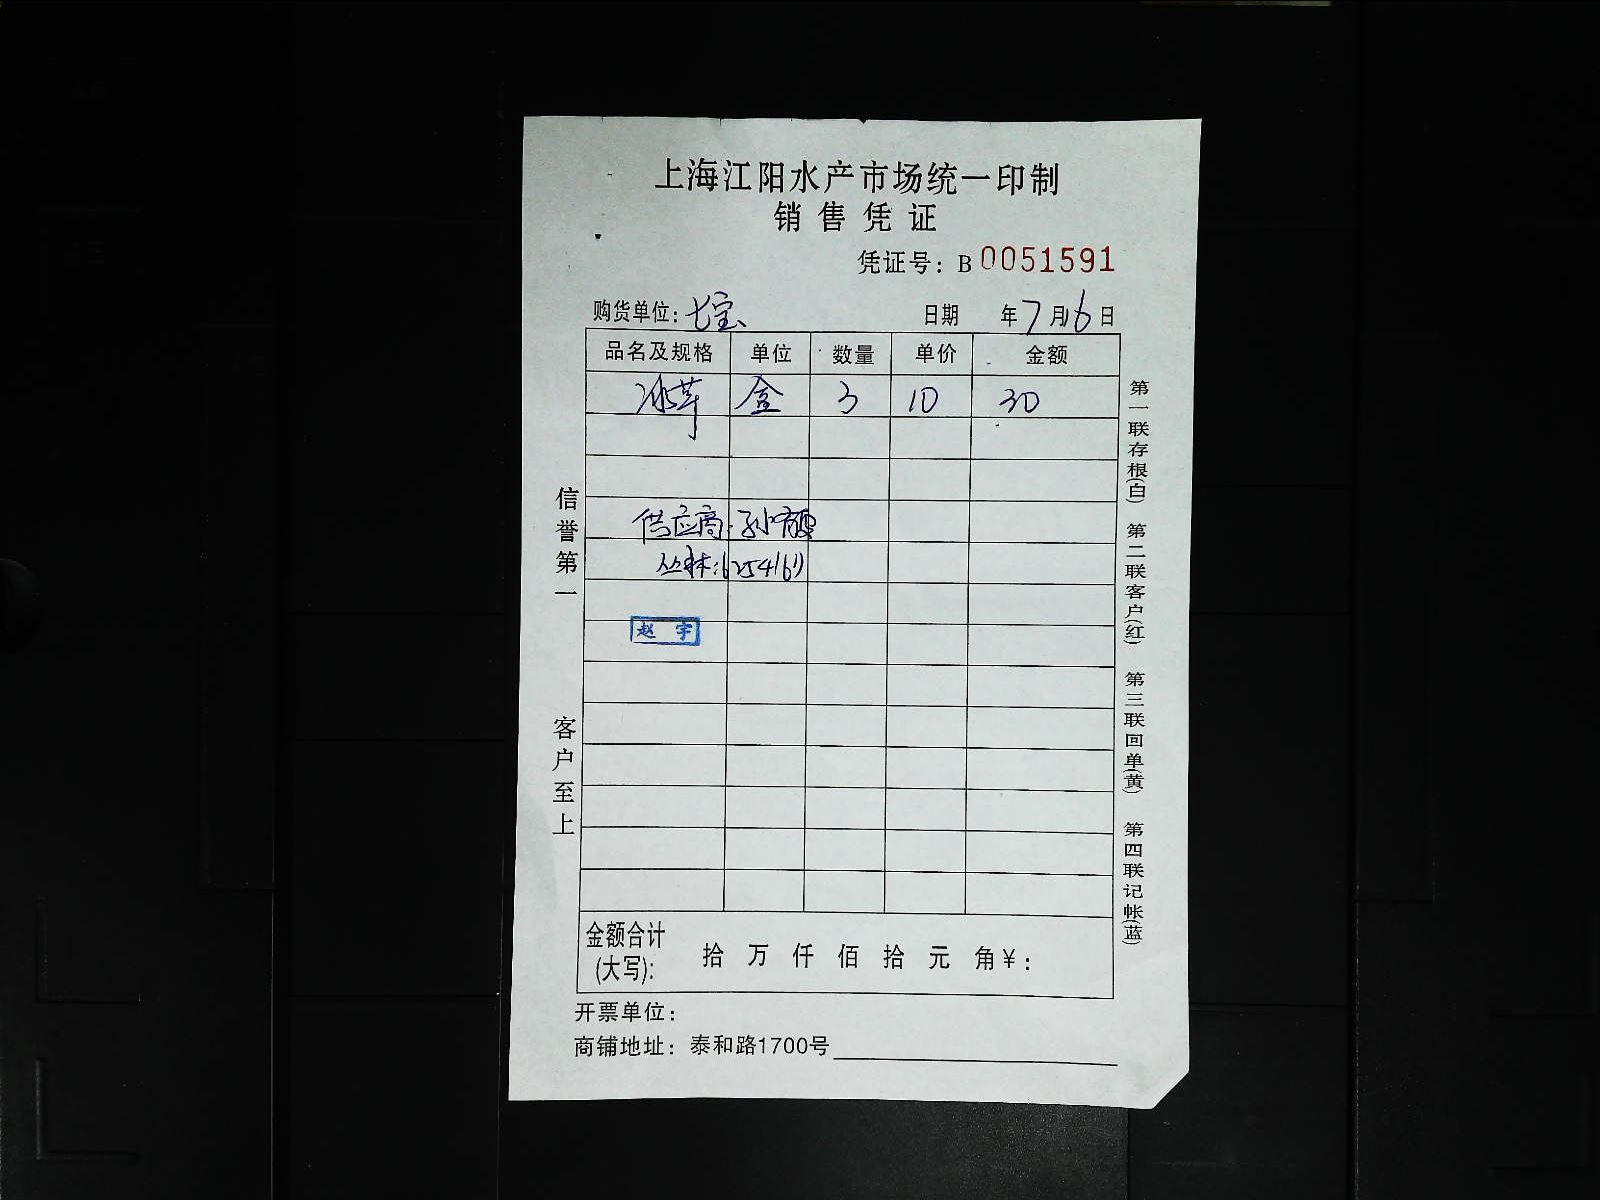 上海江阳水产市场统一印制
销售凭证
凭证号：B 0051591
购货单位：七宝 日期 年7月6日
品名及规格 单位 数量 单价 金额
冰草 盒 3 10 30
供应商：孙
丛林：
赵宇
信誉第一 客户至上
第一联存根(白) 第二联客户(红) 第三联回单(黄) 第四联记帐(蓝)
金额合计(大写)： 拾 万 仟 佰 拾 元 角 ¥：
开票单位：
商铺地址：泰和路1700号